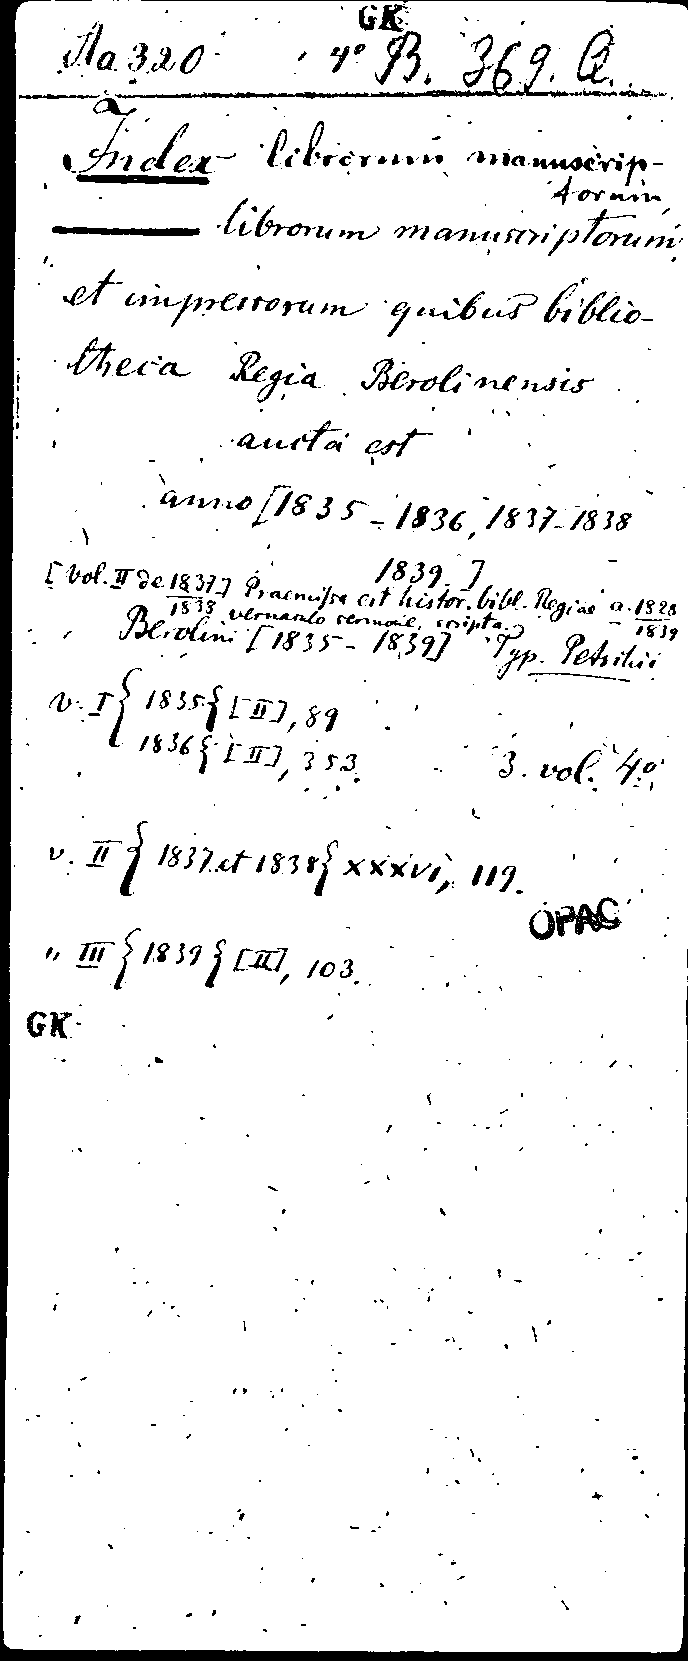 GK
Aa 320 4° B. 369. Q.
Index librorum manuscrip-
torum,
librorum manuscriptorum
et impressorum quibus biblio-
theca Regia Berolinensis
aucta est
anno [1835-1836, 1837-1838
1839.]
[Vol. II de 1837/1838] Praemissa est histor. bibl. Regiae a. 1828/1839
vernaculo sermone, scripta.
Berolini [1835-1839] Typ. Petschii
v. I { 1835 { [II], 89
1836 { [II], 353.
3. vol. 4°
v. II { 1837 et 1838 { XXXVI, 119.
OPAC
" III { 1839 { [II], 103.
GK